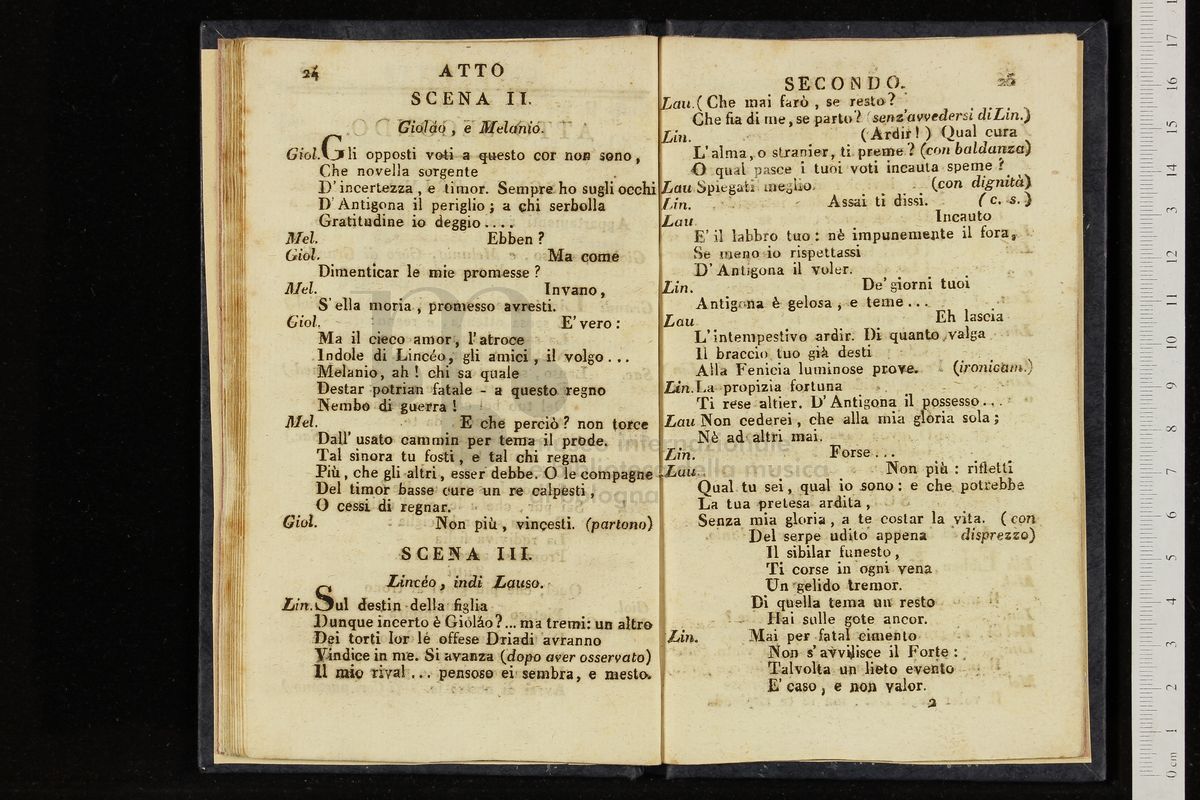 24
ATTO
SCENA II.
Gioláo, e Melanio.
Giol. Gli opposti voti a questo cor non sono,
Che novella sorgente
D'incertezza, e timor. Sempre ho sugli occhi
D'Antigona il periglio; a chi serbolla
Gratitudine io deggio....
Mel. Ebben?
Giol. Ma come
Dimenticar le mie promesse?
Mel. Invano,
S'ella moria, promesso avresti.
Giol. E' vero:
Ma il cieco amor, l'atroce
Indole di Lincéo, gli amici, il volgo...
Melanio, ah! chi sa quale
Destar potrian fatale - a questo regno
Nembo di guerra!
Mel. E che perciò? non torce
Dall'usato cammin per tema il prode.
Tal sinora tu fosti, e tal chi regna
Più, che gli altri, esser debbe. O le compagne
Del timor basse cure un re calpesti,
O cessi di regnar.
Giol. Non più, vincesti. (partono)
SCENA III.
Lincéo, indi Lauso.
Lin. Sul destin della figlia
Dunque incerto è Gioláo?... ma tremi: un altro
Dei torti lor le offese Driadi avranno
Vindice in me. Si avanza (dopo aver osservato)
Il mio rival... pensoso ei sembra, e mesto.
SECONDO.
25
Lau. (Che mai farò, se resto?
Che fia di me, se parto? (senz'avvedersi di Lin.)
Lin. (Ardir!) Qual cura
L'alma, o stranier, ti preme? (con baldanza)
O qual pasce i tuoi voti incauta speme?
Lau Spiegati meglio. (con dignità)
Lin. Assai ti dissi. (c. s.)
Lau Incauto
E' il labbro tuo: nè impunemente il fora,
Se meno io rispettassi
D'Antigona il voler.
Lin. De' giorni tuoi
Antigona è gelosa, e teme...
Lau Eh lascia
L'intempestivo ardir. Di quanto valga
Il braccio tuo già desti
Alla Fenicia luminose prove. (ironicam.)
Lin. La propizia fortuna
Ti rese altier. D'Antigona il possesso...
Lau Non cederei, che alla mia gloria sola;
Nè ad altri mai.
Lin. Forse...
Lau. Non più: rifletti
Qual tu sei, qual io sono: e che potrebbe
La tua pretesa ardita,
Senza mia gloria, a te costar la vita. (con
Del serpe udito appena disprezzo)
Il sibilar funesto,
Ti corse in ogni vena
Un gelido tremor.
Di quella tema un resto
Hai sulle gote ancor.
Lin. Mai per fatal cimento
Non s'avvilisce il Forte:
Talvolta un lieto evento
E' caso, e non valor.
2